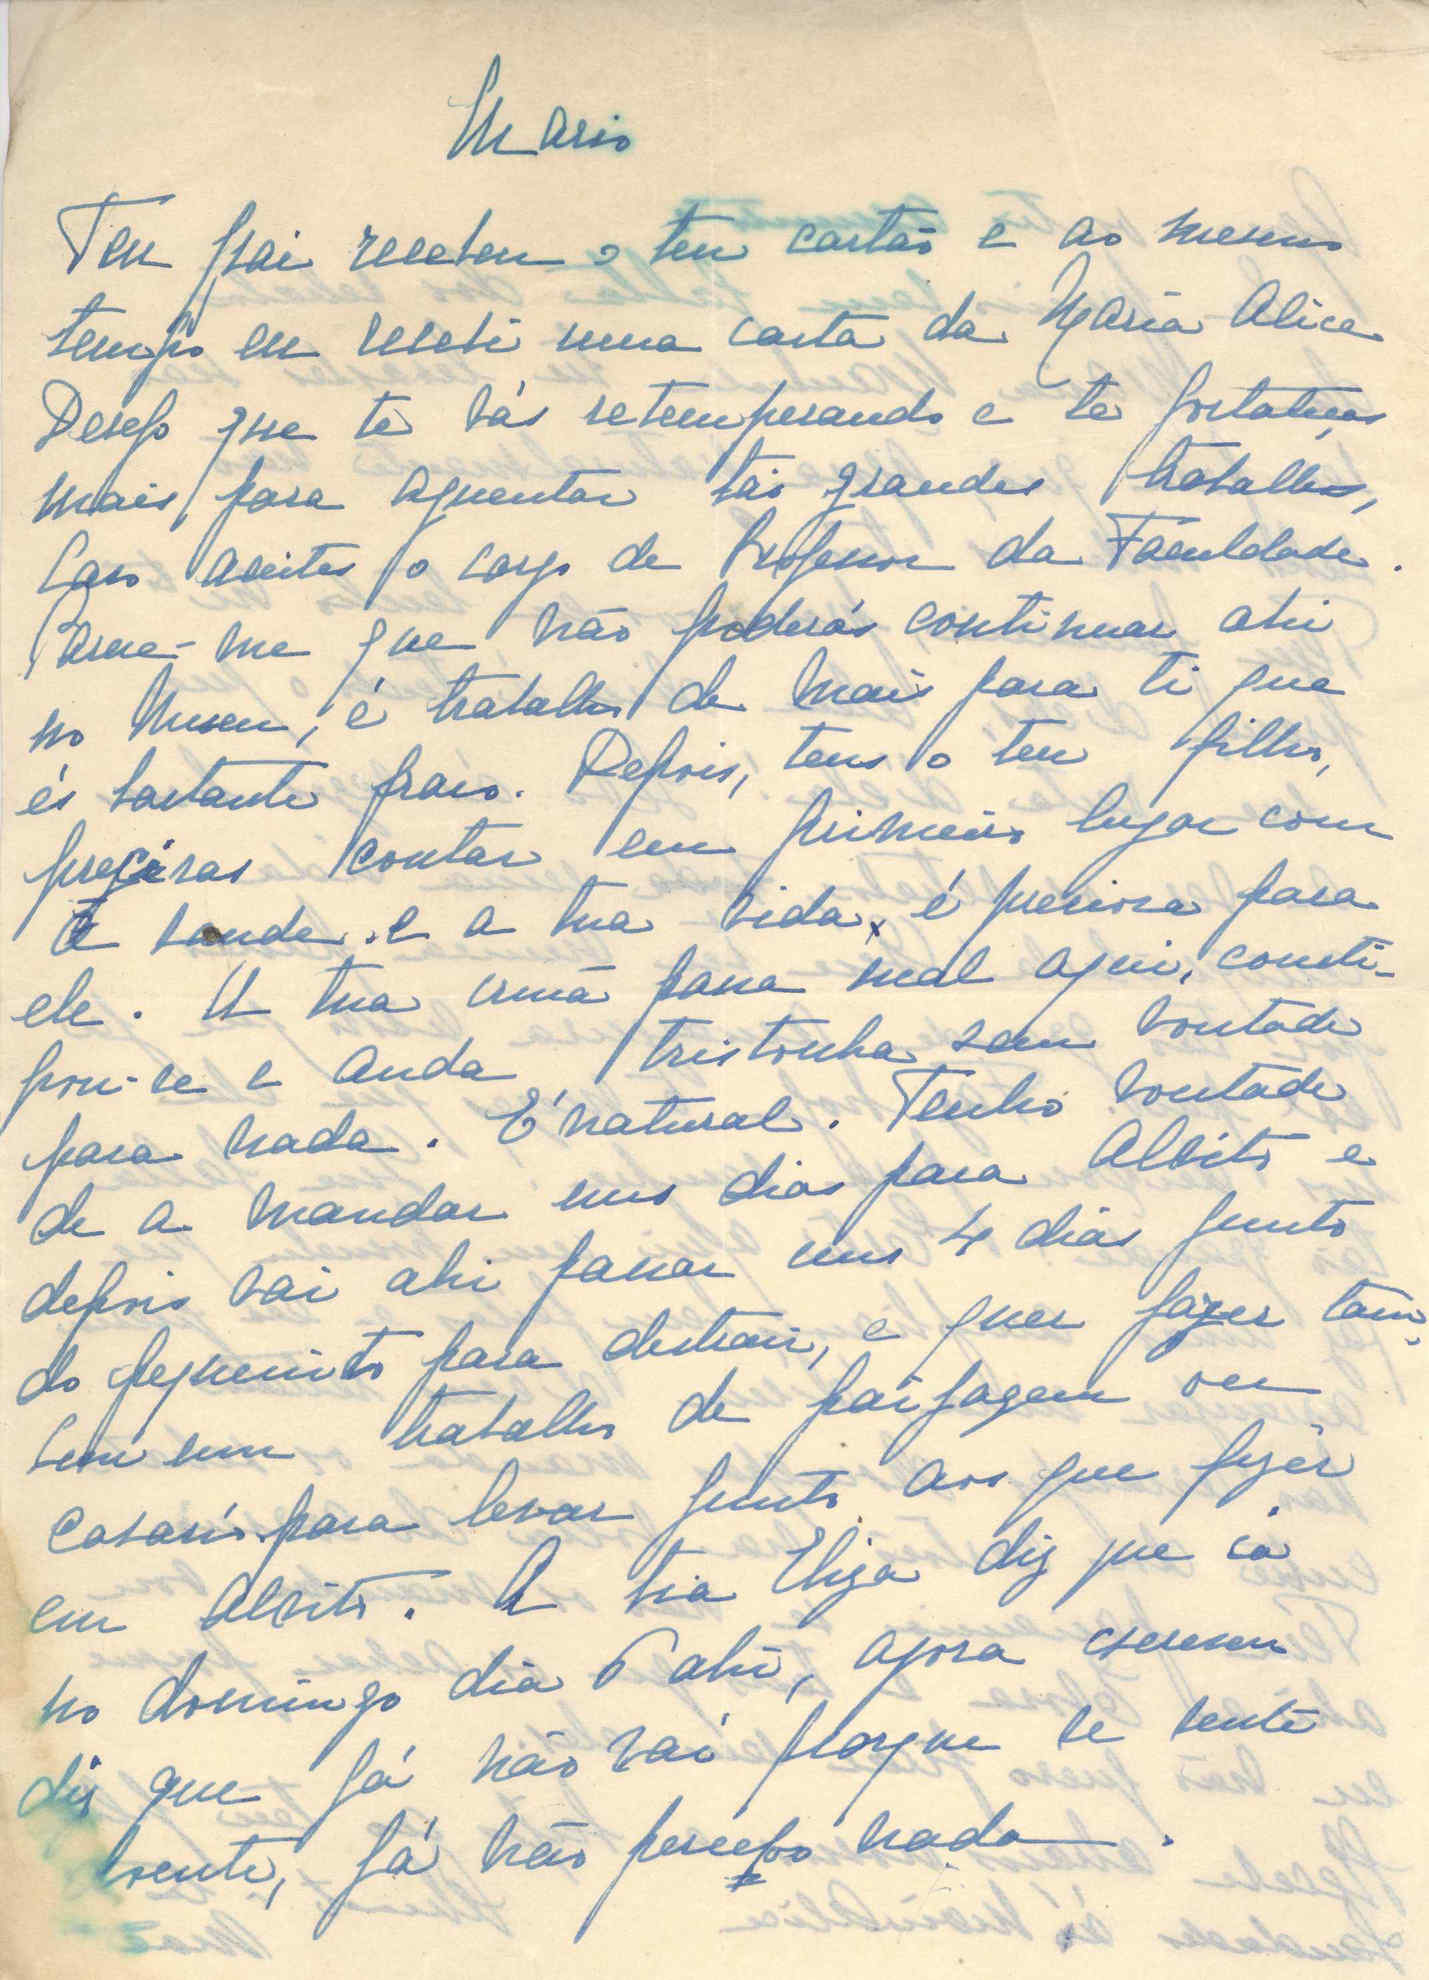 Mario
Teu pai recebeu o teu cartão e ao mesmo
tempo eu recebi uma carta da Maria Alice
Desejo que te vás retemperando e te fortaleças
mais para aguentar tão grandes trabalhos,
Caso aceites o cargo de Professor da Faculdade.
Parece-me que não poderás continuar ahi
no Museu, é trabalho de mais para ti que
és bastante fraco. Depois, tens o teu filho,
precisas contar em primeiro lugar com
a saude. e a tua vida, é preciosa para
ele. A tua irmã passa mal aqui, consti-
pou-se e anda tristonha sem vontade
para nada. É natural. Tenho vontade
de a mandar uns dias para Alvito e
depois vai ahi passar uns 4 dias junto
do pequenito para destrair, e quer fazer tam-
bem um trabalho de paisagem ou
casario para levar junto aos que fizer
em Alvito. A tia Eliza diz que ia
no domingo dia 6 ahi, agora escreveu
diz que já não vai porque se sente
doente, já não percebo nada.